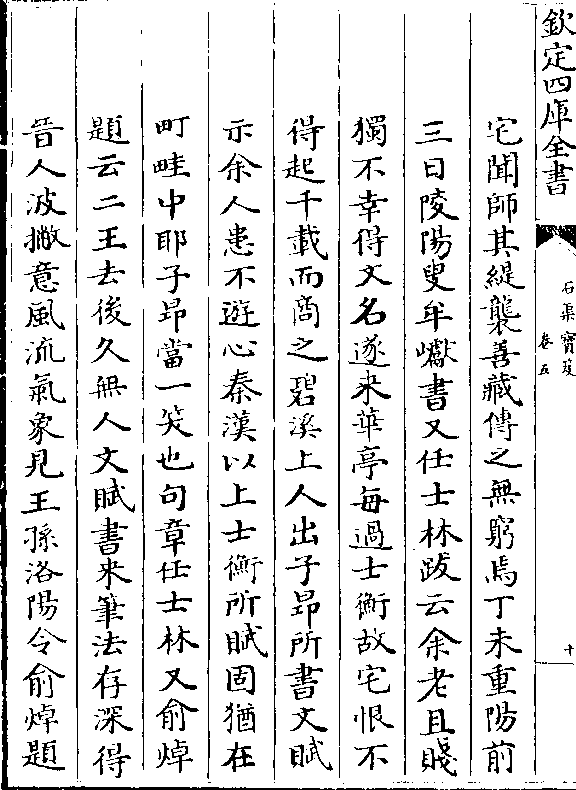 欽定四庫全書
石渠寶笈
卷五
十
宅聞師其緹襲善藏傳之無窮焉丁未重陽前
三日陵陽叟牟巘書又任士林跋云余老且賤
獨不幸得文名遂来華亭每過士衡故宅恨不
得起千載而商之碧溪上人出子昻所書文賦
示余人患不遊心秦漢以上士衡所賦固猶在
町畦中耶子昻當一笑也句章任士林又俞焯
題云二王去後久無人文賦書来筆法存深得
晉人波撇意風流氣象見王孫洛陽令俞焯題